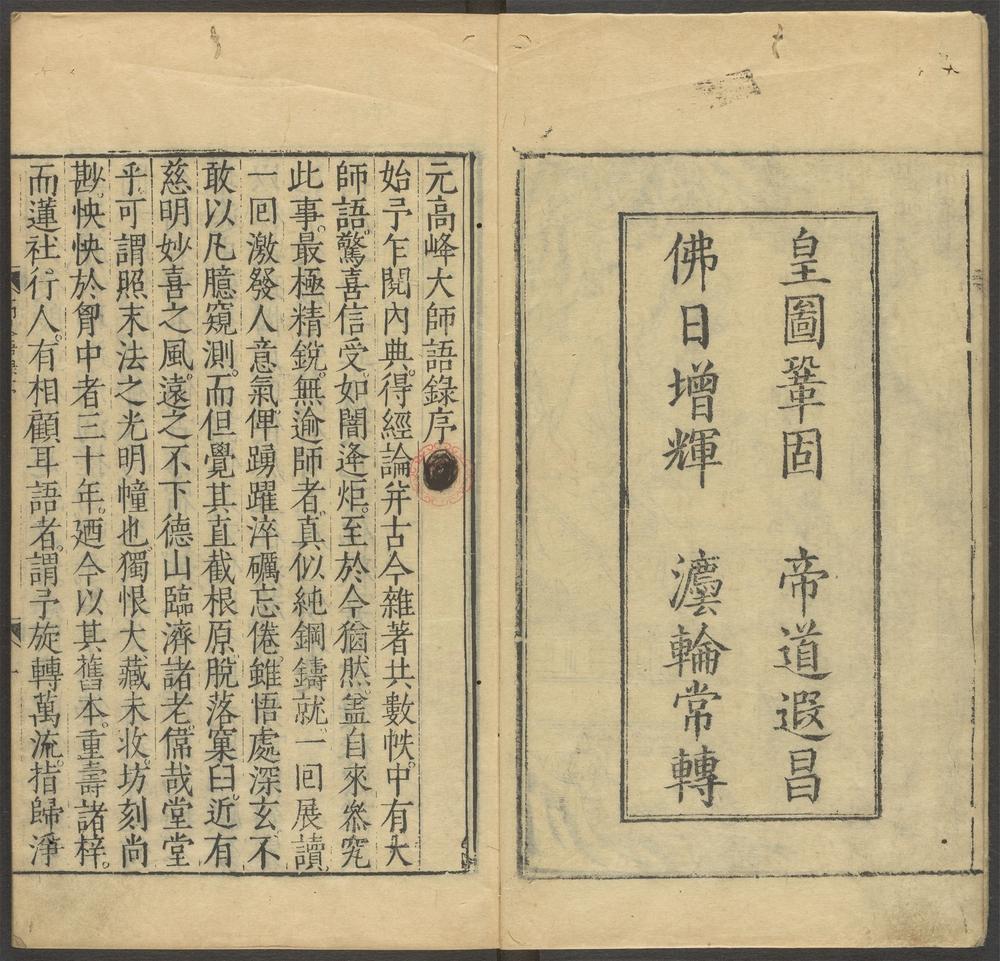 皇圖鞏固　帝道遐昌
佛日增輝　灋輪常轉
元高峰大師語錄序
始予乍閱內典。得經論并古今雜著共數帙。中有大
師語。驚喜信受。如闇逢炬。至於今猶然。葢自來叅究
此事。最極精銳。無逾師者。真似純鋼鑄就。一回展讀
一回激發人意氣。俾踴躍淬礪忘倦。雖悟處深玄。不
敢以凡臆窺測。而但覺其直截根原。脫落窠臼。近有
慈明妙喜之風。遠之不下德山臨濟諸老。偉哉堂堂
乎。可謂照末法之光明幢也。獨恨大藏未收。坊刻尚
尠。怏怏於胷中者三十年。廼今以其舊本。重壽諸梓。
而蓮社行人。有相顧耳語者。謂予旋轉萬流。指歸淨